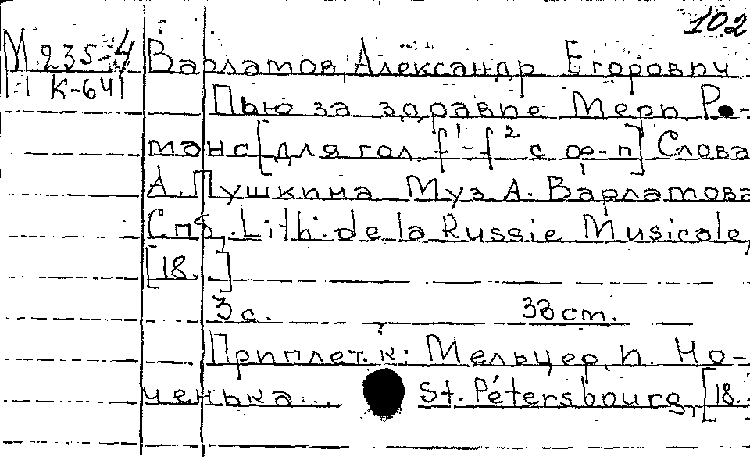 102
М 235-4 Варламов, Александр Егорович
К-641 Пью за здравие Мери Ро-
манс [для гол. f¹-f² с ф-п] Слова
А. Пушкина Муз. А. Варламова
Спб., Lith. de la Russie Musicale,
[18..]
3 с. 33 cm.
Приплет. к: Мельцер, И. Но-
ченька... St. Pétersbourg, [18..